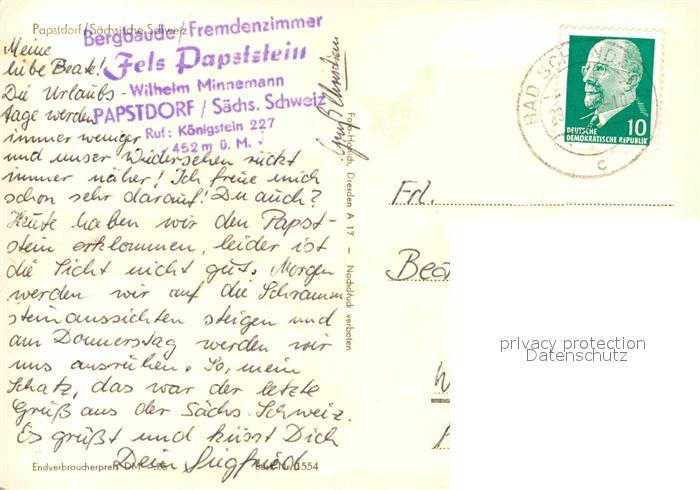 Papstdorf/Sächsische Schweiz
Bergbaude/Fremdenzimmer
Fels Papststein
- Wilhelm Minnemann
PAPSTDORF / Sächs. Schweiz
Ruf: Königstein 227
452 m ü. M.
Meine
liebe Beate!
Die Urlaubs-
tage werden
immer weniger
und unser Wiedersehen rückt
immer näher! Ich freue mich
schon sehr darauf! Du auch?
Heute haben wir den Papst-
stein erklommen, leider ist
die Sicht nicht gut. Morgen
werden wir auf die Schramm-
steinaussichten steigen und
am Donnerstag werden wir
uns ausruhen. So, mein
Schatz, das war der letzte
Gruß aus der Sächs. Schweiz.
Es grüßt und küsst Dich
Dein Siegfried
Endverbraucherpreis DM
1554
Dresden A 17 – Nachdruck verboten
BAD
c
DEUTSCHE
DEMOKRATISCHE REPUBLIK
10
Frl.
Bea
privacy protection
Datenschutz